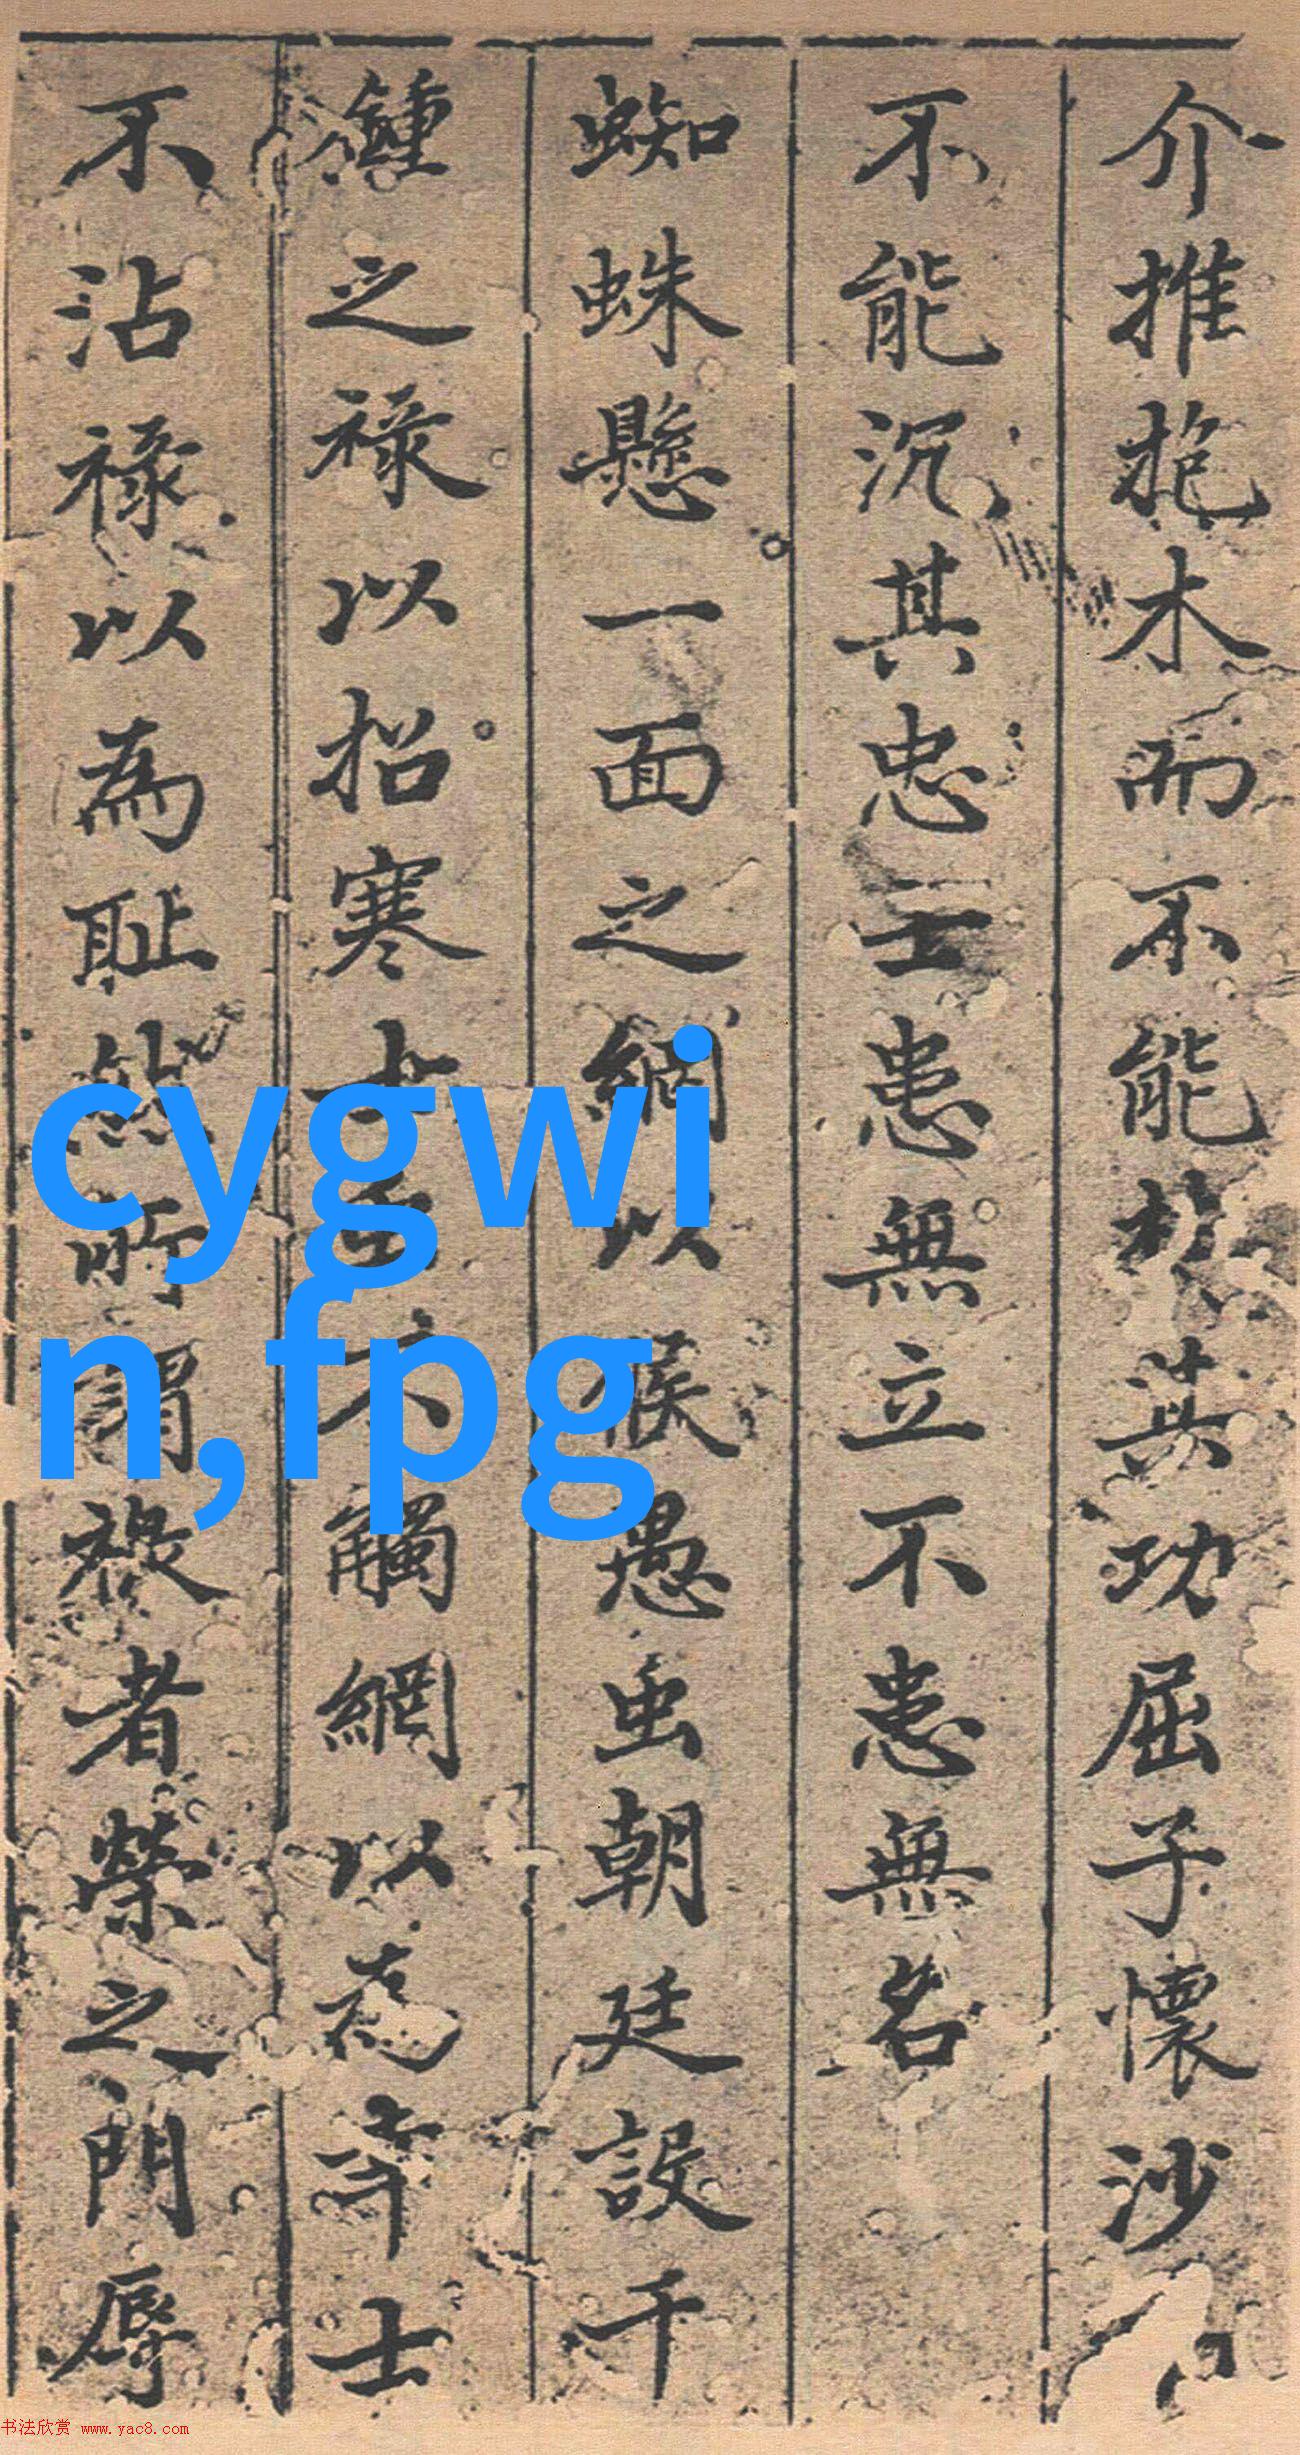 介推抱木而不能□其功屈子懷沙
不能沉其忠士患無立不患無名
蜘蛛懸一面之網以候愚虫朝廷設千
鍾之祿以招寒士士不觸網以為幸士
不沾祿以為恥然所謂祿者榮之門辱
cygwi
n,fpg
书法欣赏 www.yac8.com